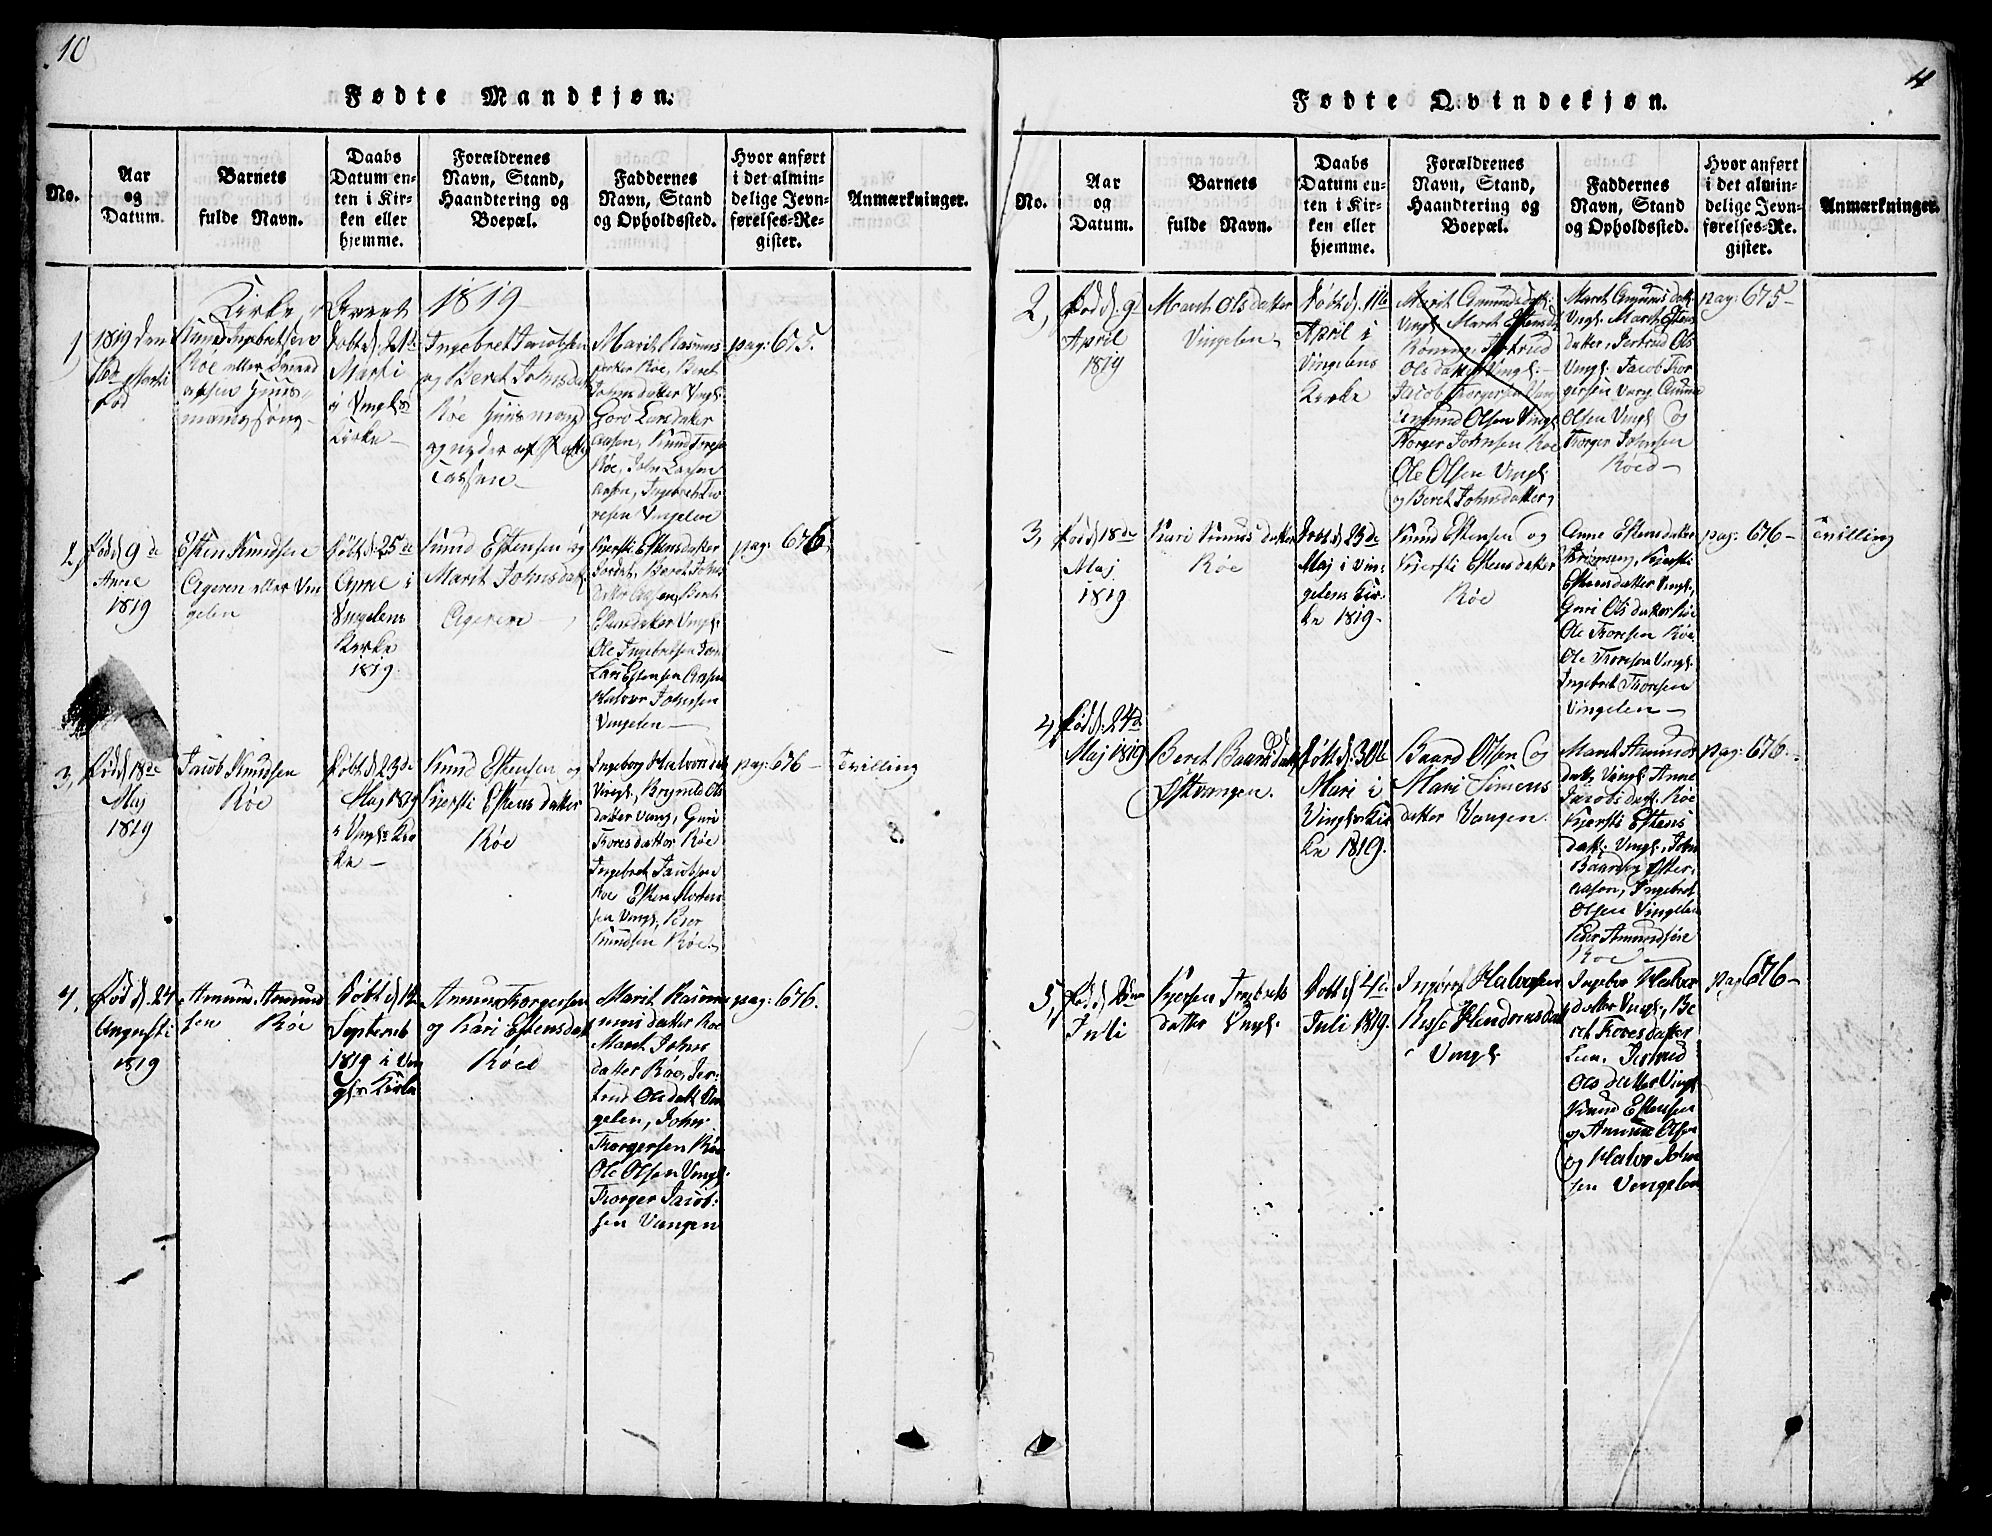 10
Fødte Mandkjøn.
No.
Aar
og
Datum.
Barnets
fulde Navn.
Daabs
Datum en-
ten i Kir-
ken eller
hjemme.
Forældrenes
Navn, Stand,
Haandtering og
Boepæl.
Faddernes
Navn, Stand
og Opholdssted.
Hvor anført
i det almin-
delige Jevn-
førelses-Re-
gister.
Anmærkninger.
Kirke Aaret 1819
1,
1819 den
16de Marti
Fød
Ingebretsen
Røe eller
Huus-
mands
Døbt d. 21de
Marti
i Vingls
Kirke
Ingebret Jacobsen
og Beret Johnsdat
Røe Huusmand
og
Marit Rasmus
datter Røe, Beret
Johnsdatter Vingl.
Goro Larsdatter
Aasen, Knud Tores
Røe, John Larsen
Aasen, Ingebret To-
resen Vingelen
pag: 675.
2,
Fød d 9de
1819
Esten Knudsen
Ageren eller Vin
gelen
Døbt d. 25de
April i
Vingelens
Kirke
1819.
Knud Estensen og
Marit Johnsdat
Ageren
Kjersti Estensdatter
Beret Johns
datter Aasen, Berit
Estensdatter Vingl.
Ole Ingebretsen
Lars Estensen Aasen
Halvor Johnsen
Vingelen
pag: 676
3,
Fød d 18de
Maj
1819
Jacob Knudsen
Røe
Døbt d 23de
Maj 1819
i Vingls Kir
ke
Knud Estensen og
Kjersti Estensdatter
Røe
Ingeborg Halvorsdat
Vingl, Brynild Ols
datter Vang, Guri
Thoresdatter Røe
Ingebret Jacobsen
Røe Esten Morten
sen Vingl, Peder
Knudsen Røe
pag: 676
Tvilling
4.
Fød d. 24
Augusti
1819
Amund Amund
sen Røe
Døbt d 12
Septemb
1819 i Vin
gls Kirke
Amund Thorgersen
og Kari Estensdat
Røed
Marit Rasmus
datter Røe
Marit Johns
datter Røe, Jer-
trud Olsdatt Vin
gelen, John
Thorgersen Røe
Ole Olsen Vingl.
Thorger Jacob-
sen Vangen
pag: 676.
Fødte Qvindekjøn.
No.
Aar
og
Datum.
Barnets
fulde Navn.
Daabs
Datum en-
ten i Kir-
ken eller
hjemme.
Forældrenes
Navn, Stand,
Haandtering og
Boepæl.
Faddernes
Navn, Stand
og Opholdssted.
Hvor anført
i det almin-
delige Jevn-
førelses-Re-
gister.
Anmærkninger.
2,
Fød d. 9de
April
1819
Marit Olsdatter
Vingelen
Døbt d. 11te
April i
Vingelens
Kirke
Marit Amundsdatt:
Vingl Marit Estensdat
Rønning, Jertrud
Olsdatter Vingl.
Jacob Thorgersen Vin
Amund Olsen Vingl
Thorger Johnsen Røe
Ole Olsen Vingl.
og Beret Johnsdatter,
Marit Amunds datt.
Vingl. Marit Estens
datter, Jertrud Ols
Vingl. Jacob Thor
gersen Ving. Amund
Olsen Vingl og
Thorger Johnsen
Røed
pag: 675
3,
Fød d 18de
Maj
1819
Kari Knudsdatter
Røe
Døbt d 23de
Maj i Vin-
gelens Kir-
ke 1819.
Knud Estensen og
Kjersti Estensdatter
Røe
Anne Estensdatter
Kjersti
Estensdatter Vingl.
Guri Olsdatter Røe
Ole Thoresen Røe
Ole Thoresen Vingl.
Ingebret Thoresen
Vingelen
pag: 676
Tvilling
4,
Fød d: 24de
Maj 1819
Beret Baardsdatt
Østvangen.
Døbt d: 30te
Mari i
Vingls Kir
ke 1819.
Baard Olsen og
Mari Simens
datter Vangen.
Marit Amunds
datt, Vingl. Anne
Jacobsdatt. Røe
Kjersti Estens
datt. Vingl., John
Baardsen
Aasen, Ingebret
Olsen Vingelen
Peder Amundsøn
Røe
pag: 676
5,
Fød d.
Juli
Kjersten Ingebrets
datter Vingl.
Døbt d 4de
Juli 1819.
Halvorsen
Vingl
Ingebor Halvor
datter Vingl, Be
ret Thoresdatter
Lien. Jertrud
Olsdatter Vingl
Knud Estensen
og Amund Olsen
og Halvor John
sen Vingelen
pag 676